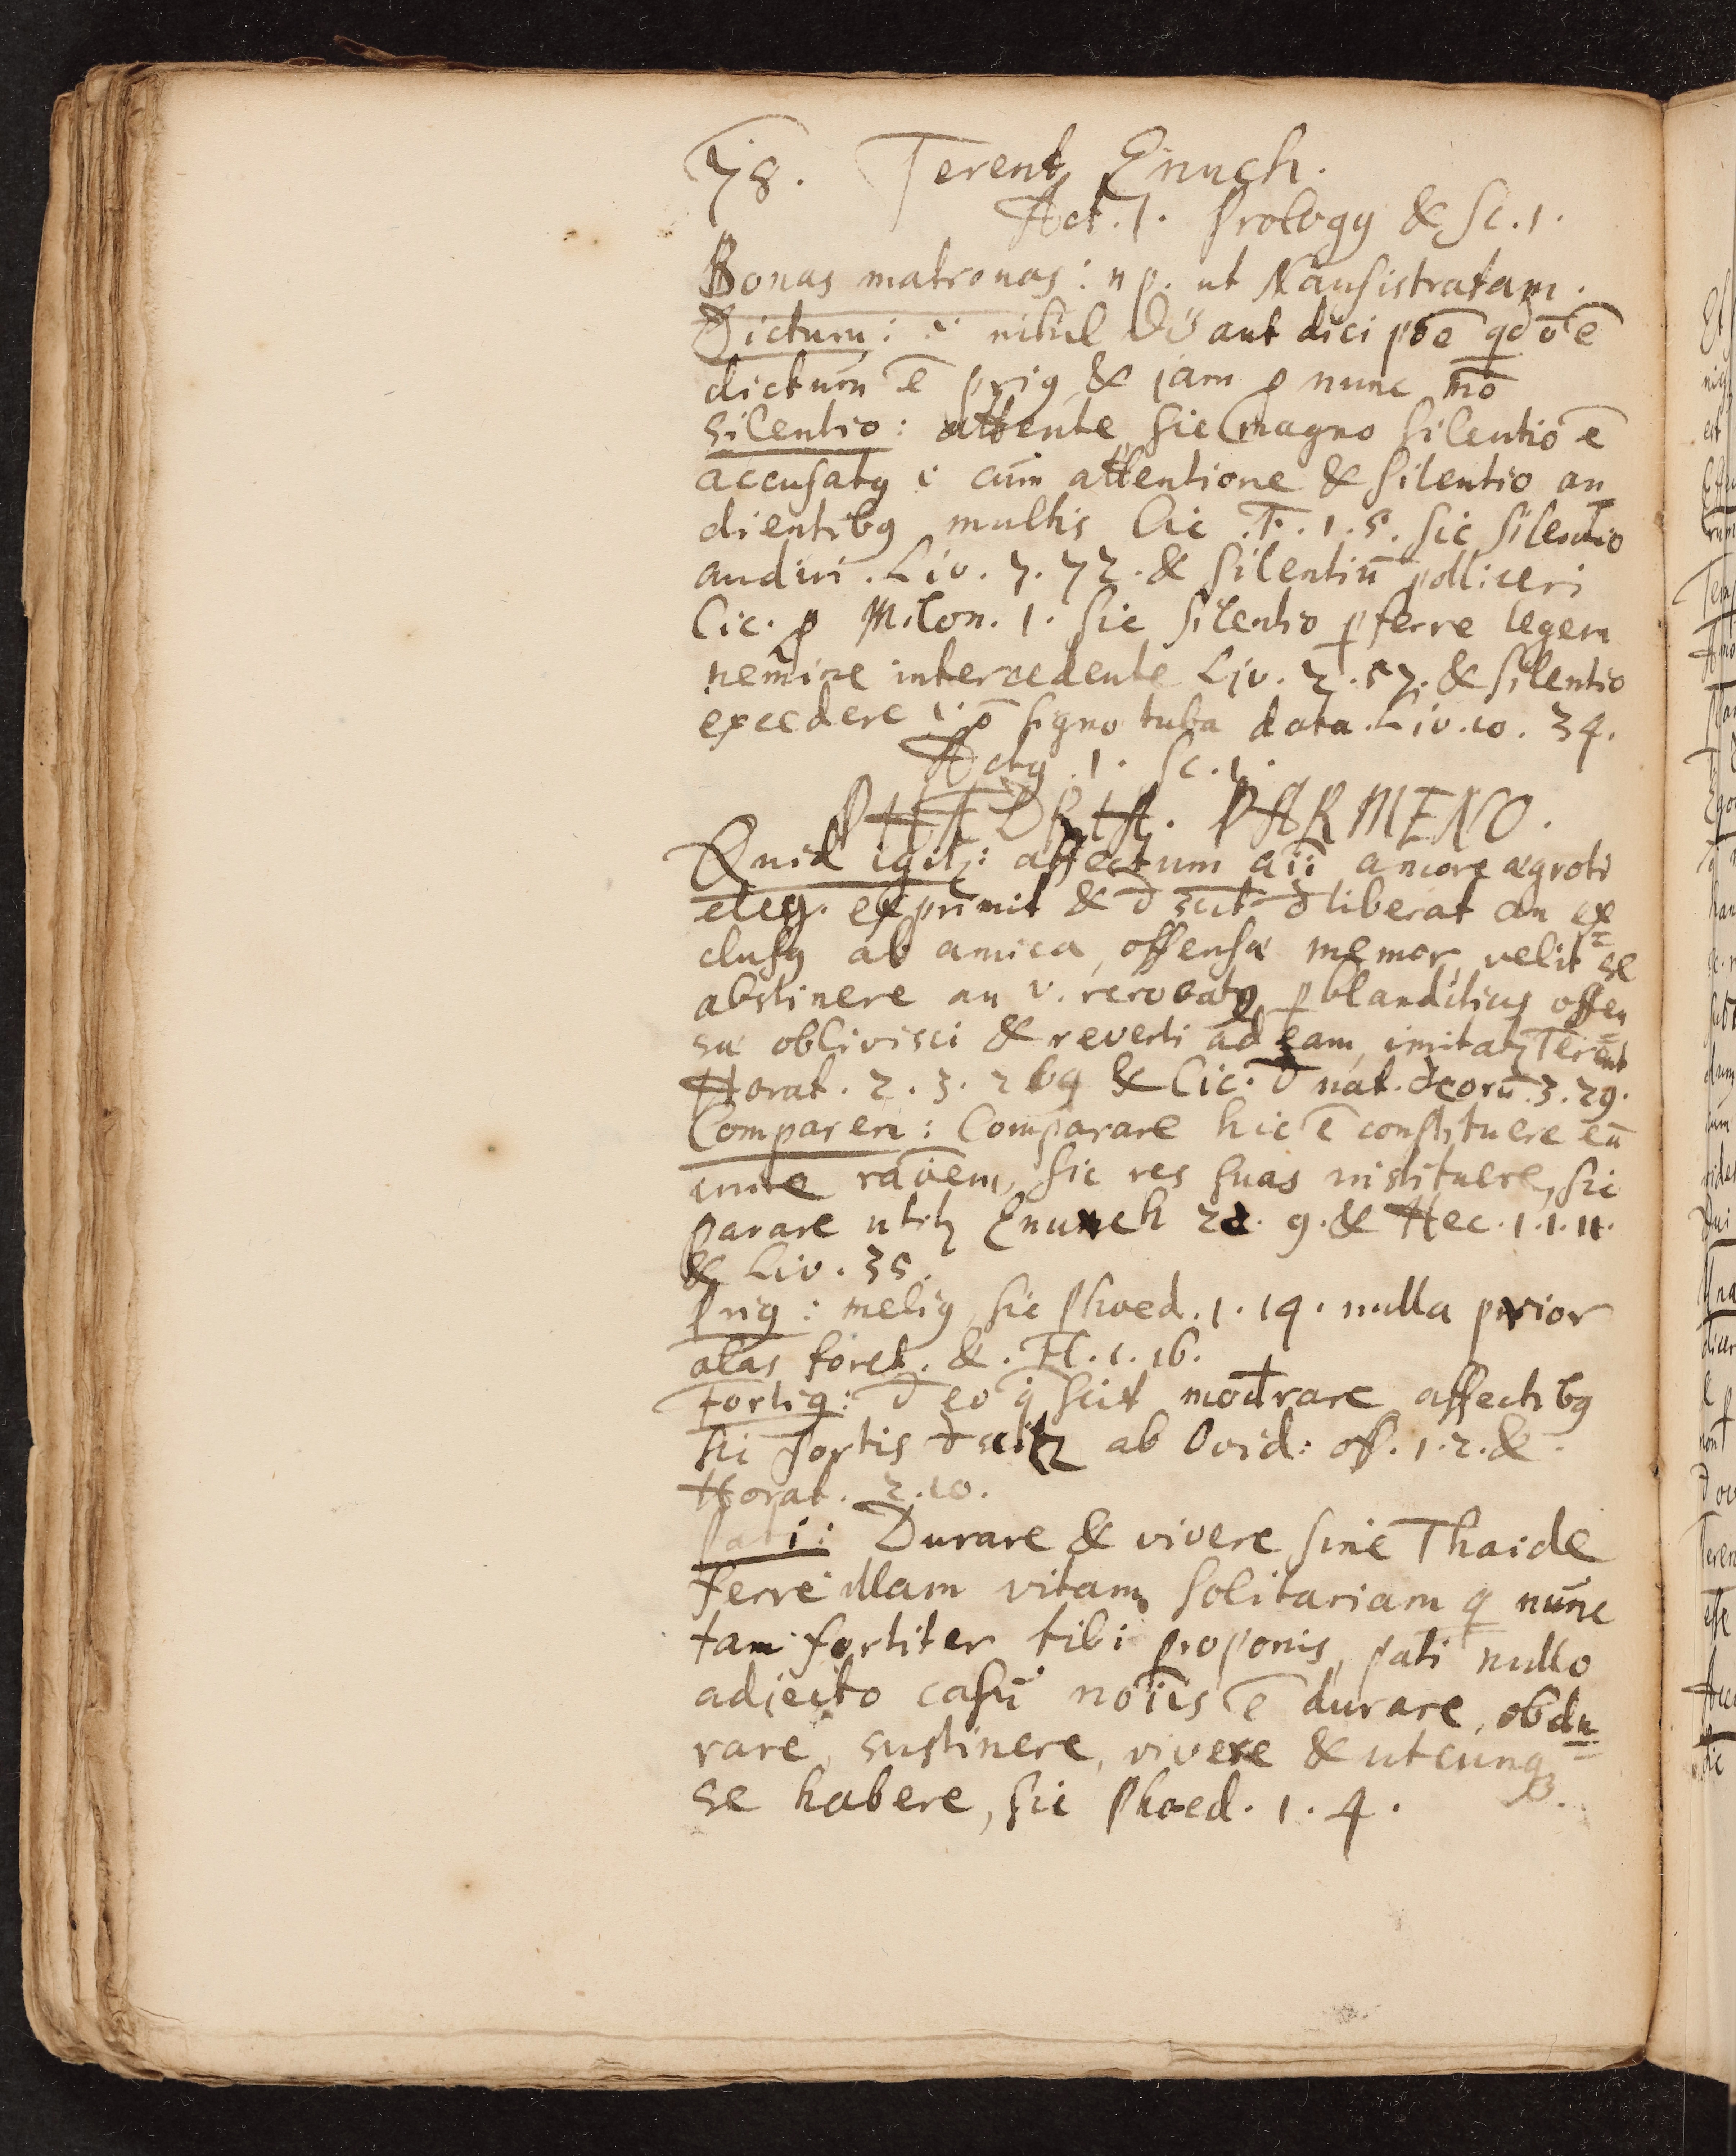 78. Terent Enuch.
Act. 1. Prologꝯ & Sc. 1.
Bonas matronas: np. ut Nausistratam.
Dictum: i. nihil aut dici põe qđ ō ē
dictum ē priꝯ & jam p nunc mō
silentio: attente sic magno silentio ē
accusatꝯ i cum attentione & silentio au
dientibꝯ multis Cic. F. 1. 5. sic silentio
audiri. Liv. 7. 72. & silentiū polliceri
Cic. p Milon. 1. sic silentio pferre legem
nemine intercedente Liv. 2. 57. & silentio
excedere i. signo tuba data. Liv. 10. 34.
Actꝯ. 1. Sc. 1.
PHÆDRIA. PARMENO.
Quid igit: affectum aīi amore ægroti
eleg. exprimit & đliberat an ex=
clusꝯ ab amica, offensæ memor, velit se
abstinere an v. revocatꝯ p blanditias offen=
sæ oblivisci & reverti ad eam, imitat Terent
Horat. 2. 3. 26q & Cic. đ nat. deorū. 3. 29.
Comparem: Comparare hic ē constituere eū
inire rāōem, sic res suas instituere, sic
parare utit Enuch 22. 9. & Hec. 1. 1. 11.
& Liv. 35.
Priꝯ: meliꝯ sic Phæd. 1. 14. nulla prior
alas foret. & Fl. 1. 16.
Fortiꝯ: đ eo q scit modrare affectibꝯ
hi fortis ab Ovid: off. 1. 2. &
Horat. 2. 10.
Pati: Durare & vivere sine Thaide
ferre illam vitam solitariam q nunc
tam fortiter tibi proponis, pati nullo
adjecto casu ē durare, obdu=
rare, sustinere, vivere & utcunqꝫ
se habere, sic Phæd. 1. 4.